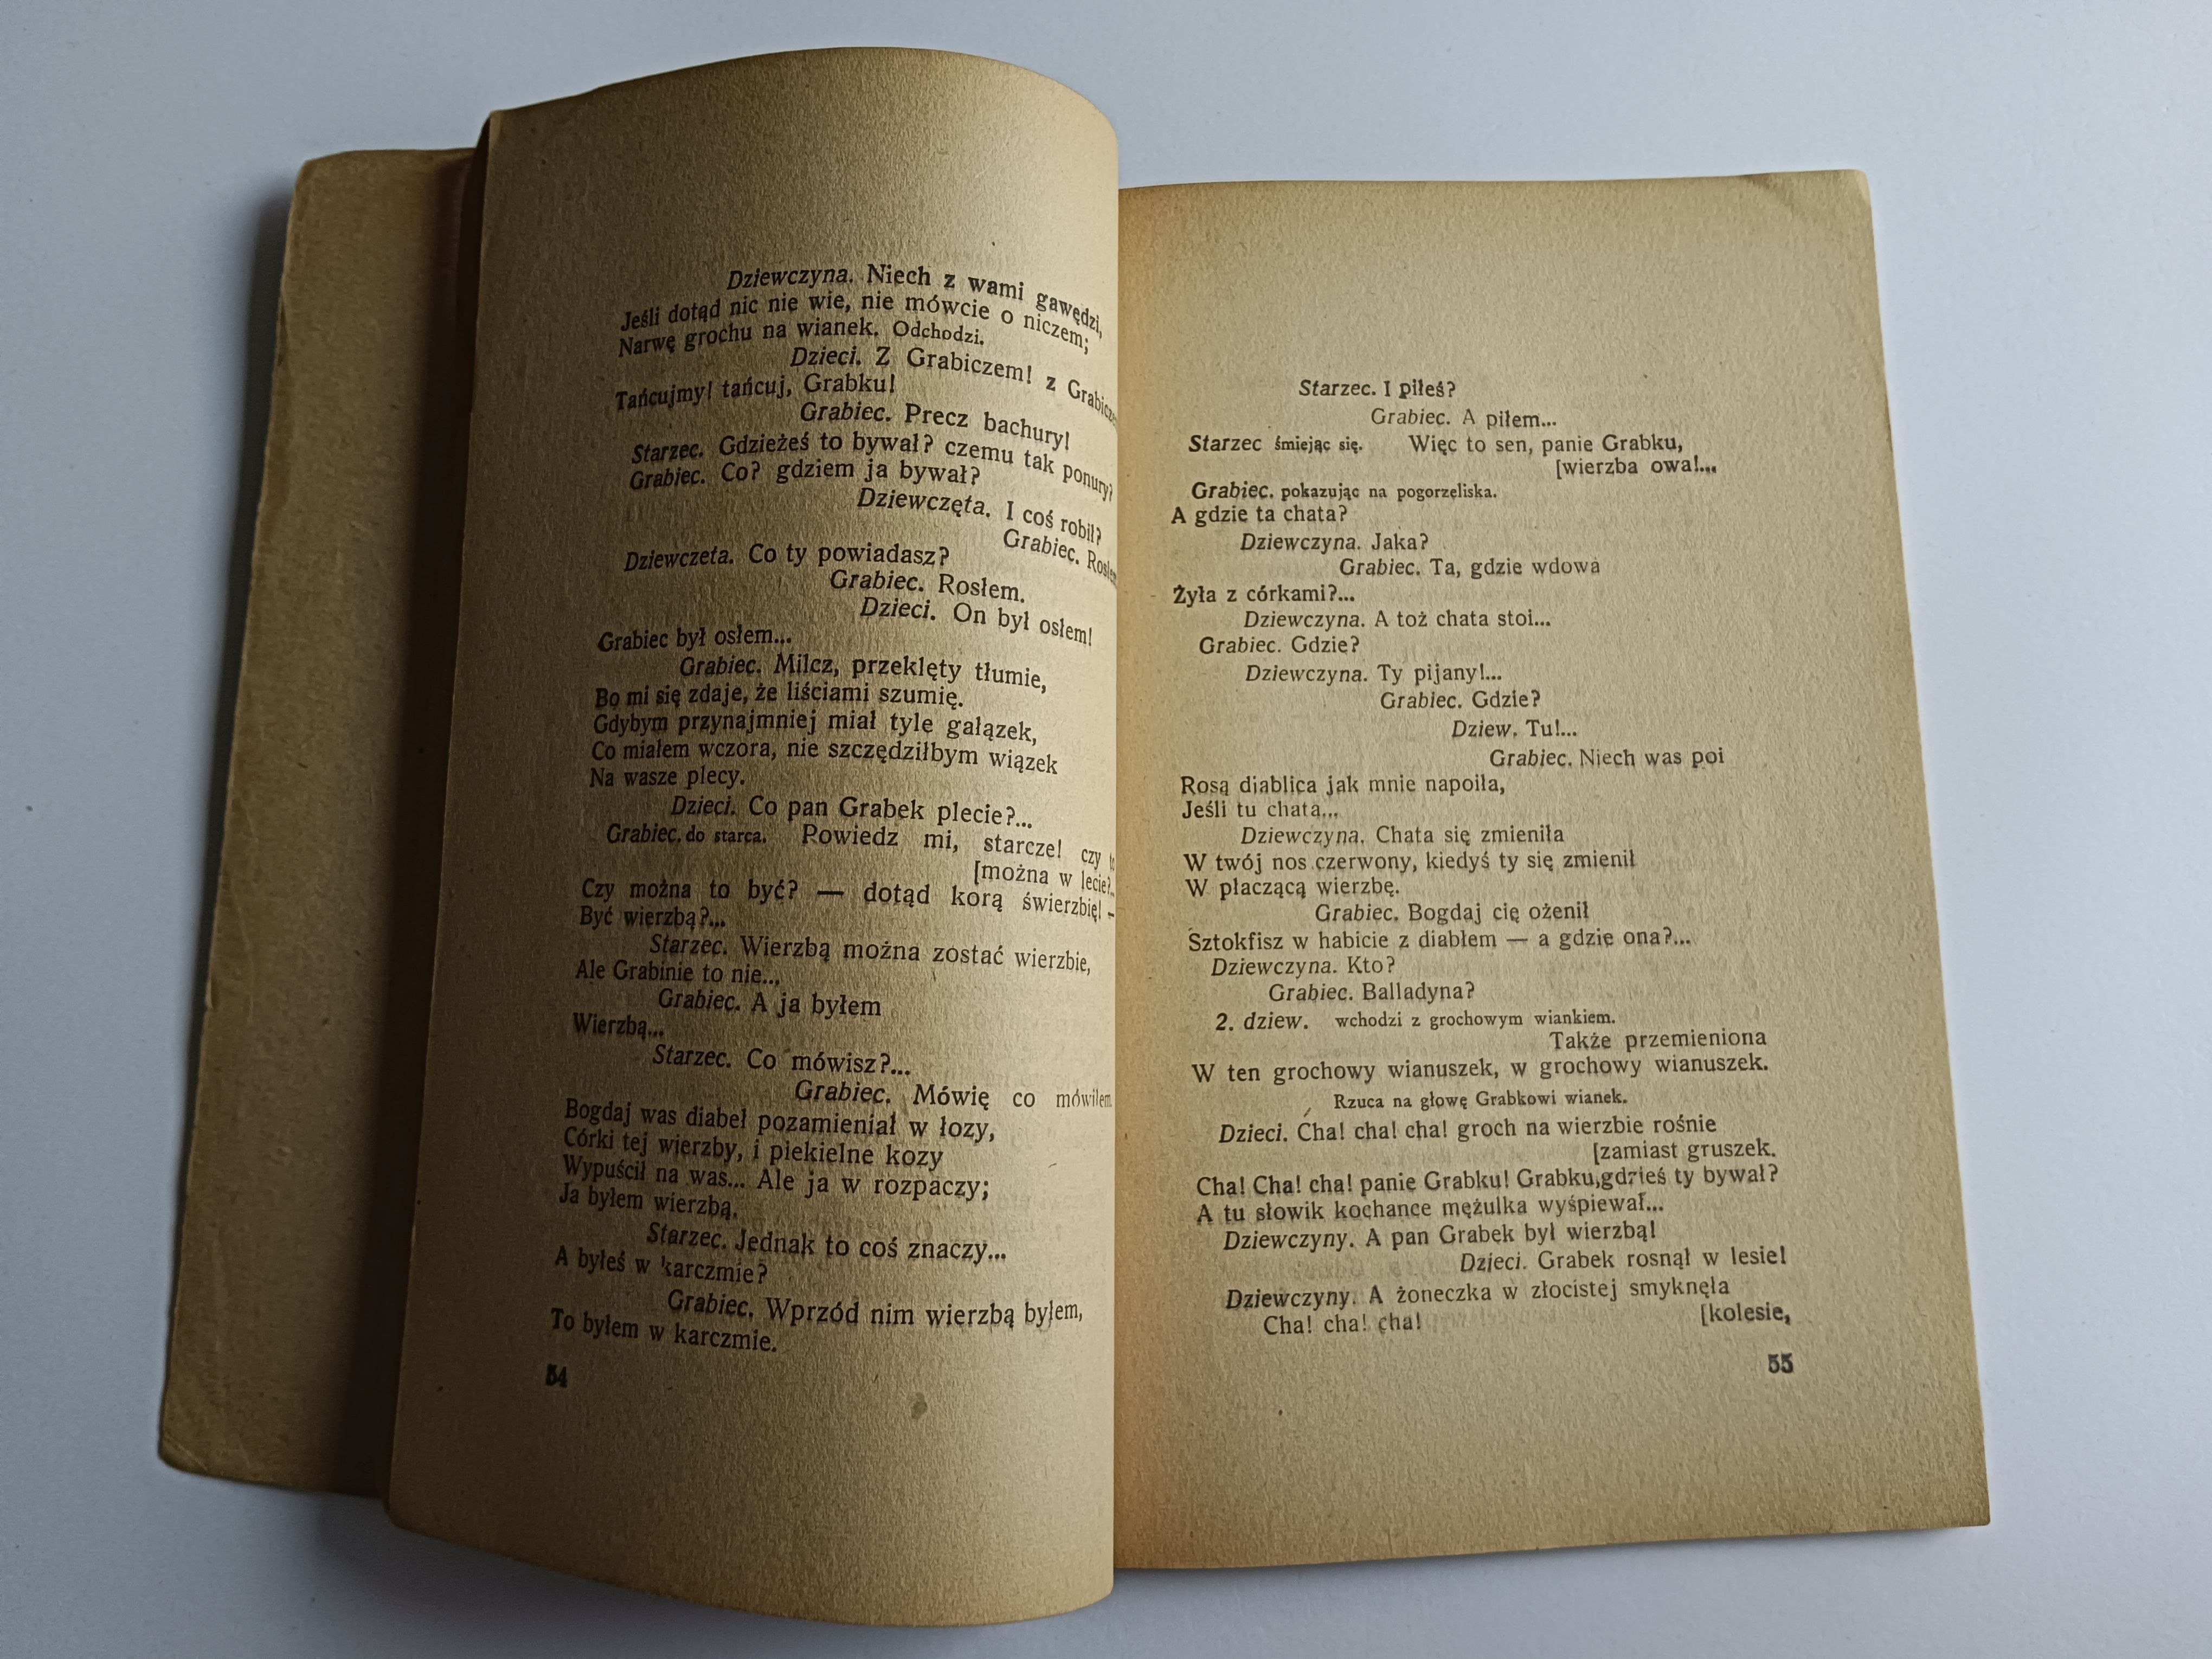 Dziewczyna. Niech z wami gawędzi,
Jeśli dotąd nic nie wie, nie mówcie o niczem;
Narwę grochu na wianek. Odchodzi.
Dzieci. Z Grabiczem! z
Tańcujmy! tańcuj, Grabku!
Grabiec. Precz bachury!
Starzec. Gdzieżeś to bywał? czemu tak ponury?
Grabiec. Co? gdziem ja bywał?
Dziewczęta. I coś robił?
Grabiec.
Dziewczeta. Co ty powiadasz?
Grabiec. Rosłem.
Dzieci. On był osłem!
Grabiec był osłem...
Grabiec. Milcz, przeklęty tłumie,
Bo mi się zdaje, że liściami szumię.
Gdybym przynajmniej miał tyle gałązek,
Co miałem wczora, nie szczędziłbym wiązek
Na wasze plecy.
Dzieci. Co pan Grabek plecie?...
Grabiec. do starca. Powiedz mi, starcze! czy
[można w lecie?..
Czy można to być? — dotąd korą świerzbię! —
Być wierzbą?...
Starzec. Wierzbą można zostać wierzbie,
Ale Grabinie to nie...
Grabiec. A ja byłem
Wierzbą...
Starzec. Co mówisz?...
Grabiec. Mówię co mówiłem.
Bogdaj was diabeł pozamieniał w łozy,
Córki tej wierzby, i piekielne kozy
Wypuścił na was... Ale ja w rozpaczy;
Ja byłem wierzbą.
Starzec. Jednak to coś znaczy...
A byłeś w karczmie?
Grabiec. Wprzód nim wierzbą byłem,
To byłem w karczmie.
54
Starzec. I piłeś?
Grabiec. A piłem...
Starzec śmiejąc się. Więc to sen, panie Grabku,
[wierzba owa!...
Grabiec. pokazując na pogorzeliska.
A gdzie ta chata?
Dziewczyna. Jaka?
Grabiec. Ta, gdzie wdowa
Żyła z córkami?...
Dziewczyna. A toż chata stoi...
Grabiec. Gdzie?
Dziewczyna. Ty pijany!...
Grabiec. Gdzie?
Dziew. Tu!...
Grabiec. Niech was poi
Rosą diablica jak mnie napoiła,
Jeśli tu chata...
Dziewczyna. Chata się zmieniła
W twój nos czerwony, kiedyś ty się zmienił
W płaczącą wierzbę.
Grabiec. Bogdaj cię ożenił
Sztokfisz w habicie z diabłem — a gdzie ona?...
Dziewczyna. Kto?
Grabiec. Balladyna?
2. dziew. wchodzi z grochowym wiankiem.
Także przemieniona
W ten grochowy wianuszek, w grochowy wianuszek.
Rzuca na głowę Grabkowi wianek.
Dzieci. Cha! cha! cha! groch na wierzbie rośnie
[zamiast gruszek.
Cha! Cha! cha! panie Grabku! Grabku,gdzieś ty bywał?
A tu słowik kochance mężulka wyśpiewał...
Dziewczyny. A pan Grabek był wierzbą!
Dzieci. Grabek rosnął w lesie!
Dziewczyny. A żoneczka w złocistej smyknęła
[kolesie,
Cha! cha! cha!
55